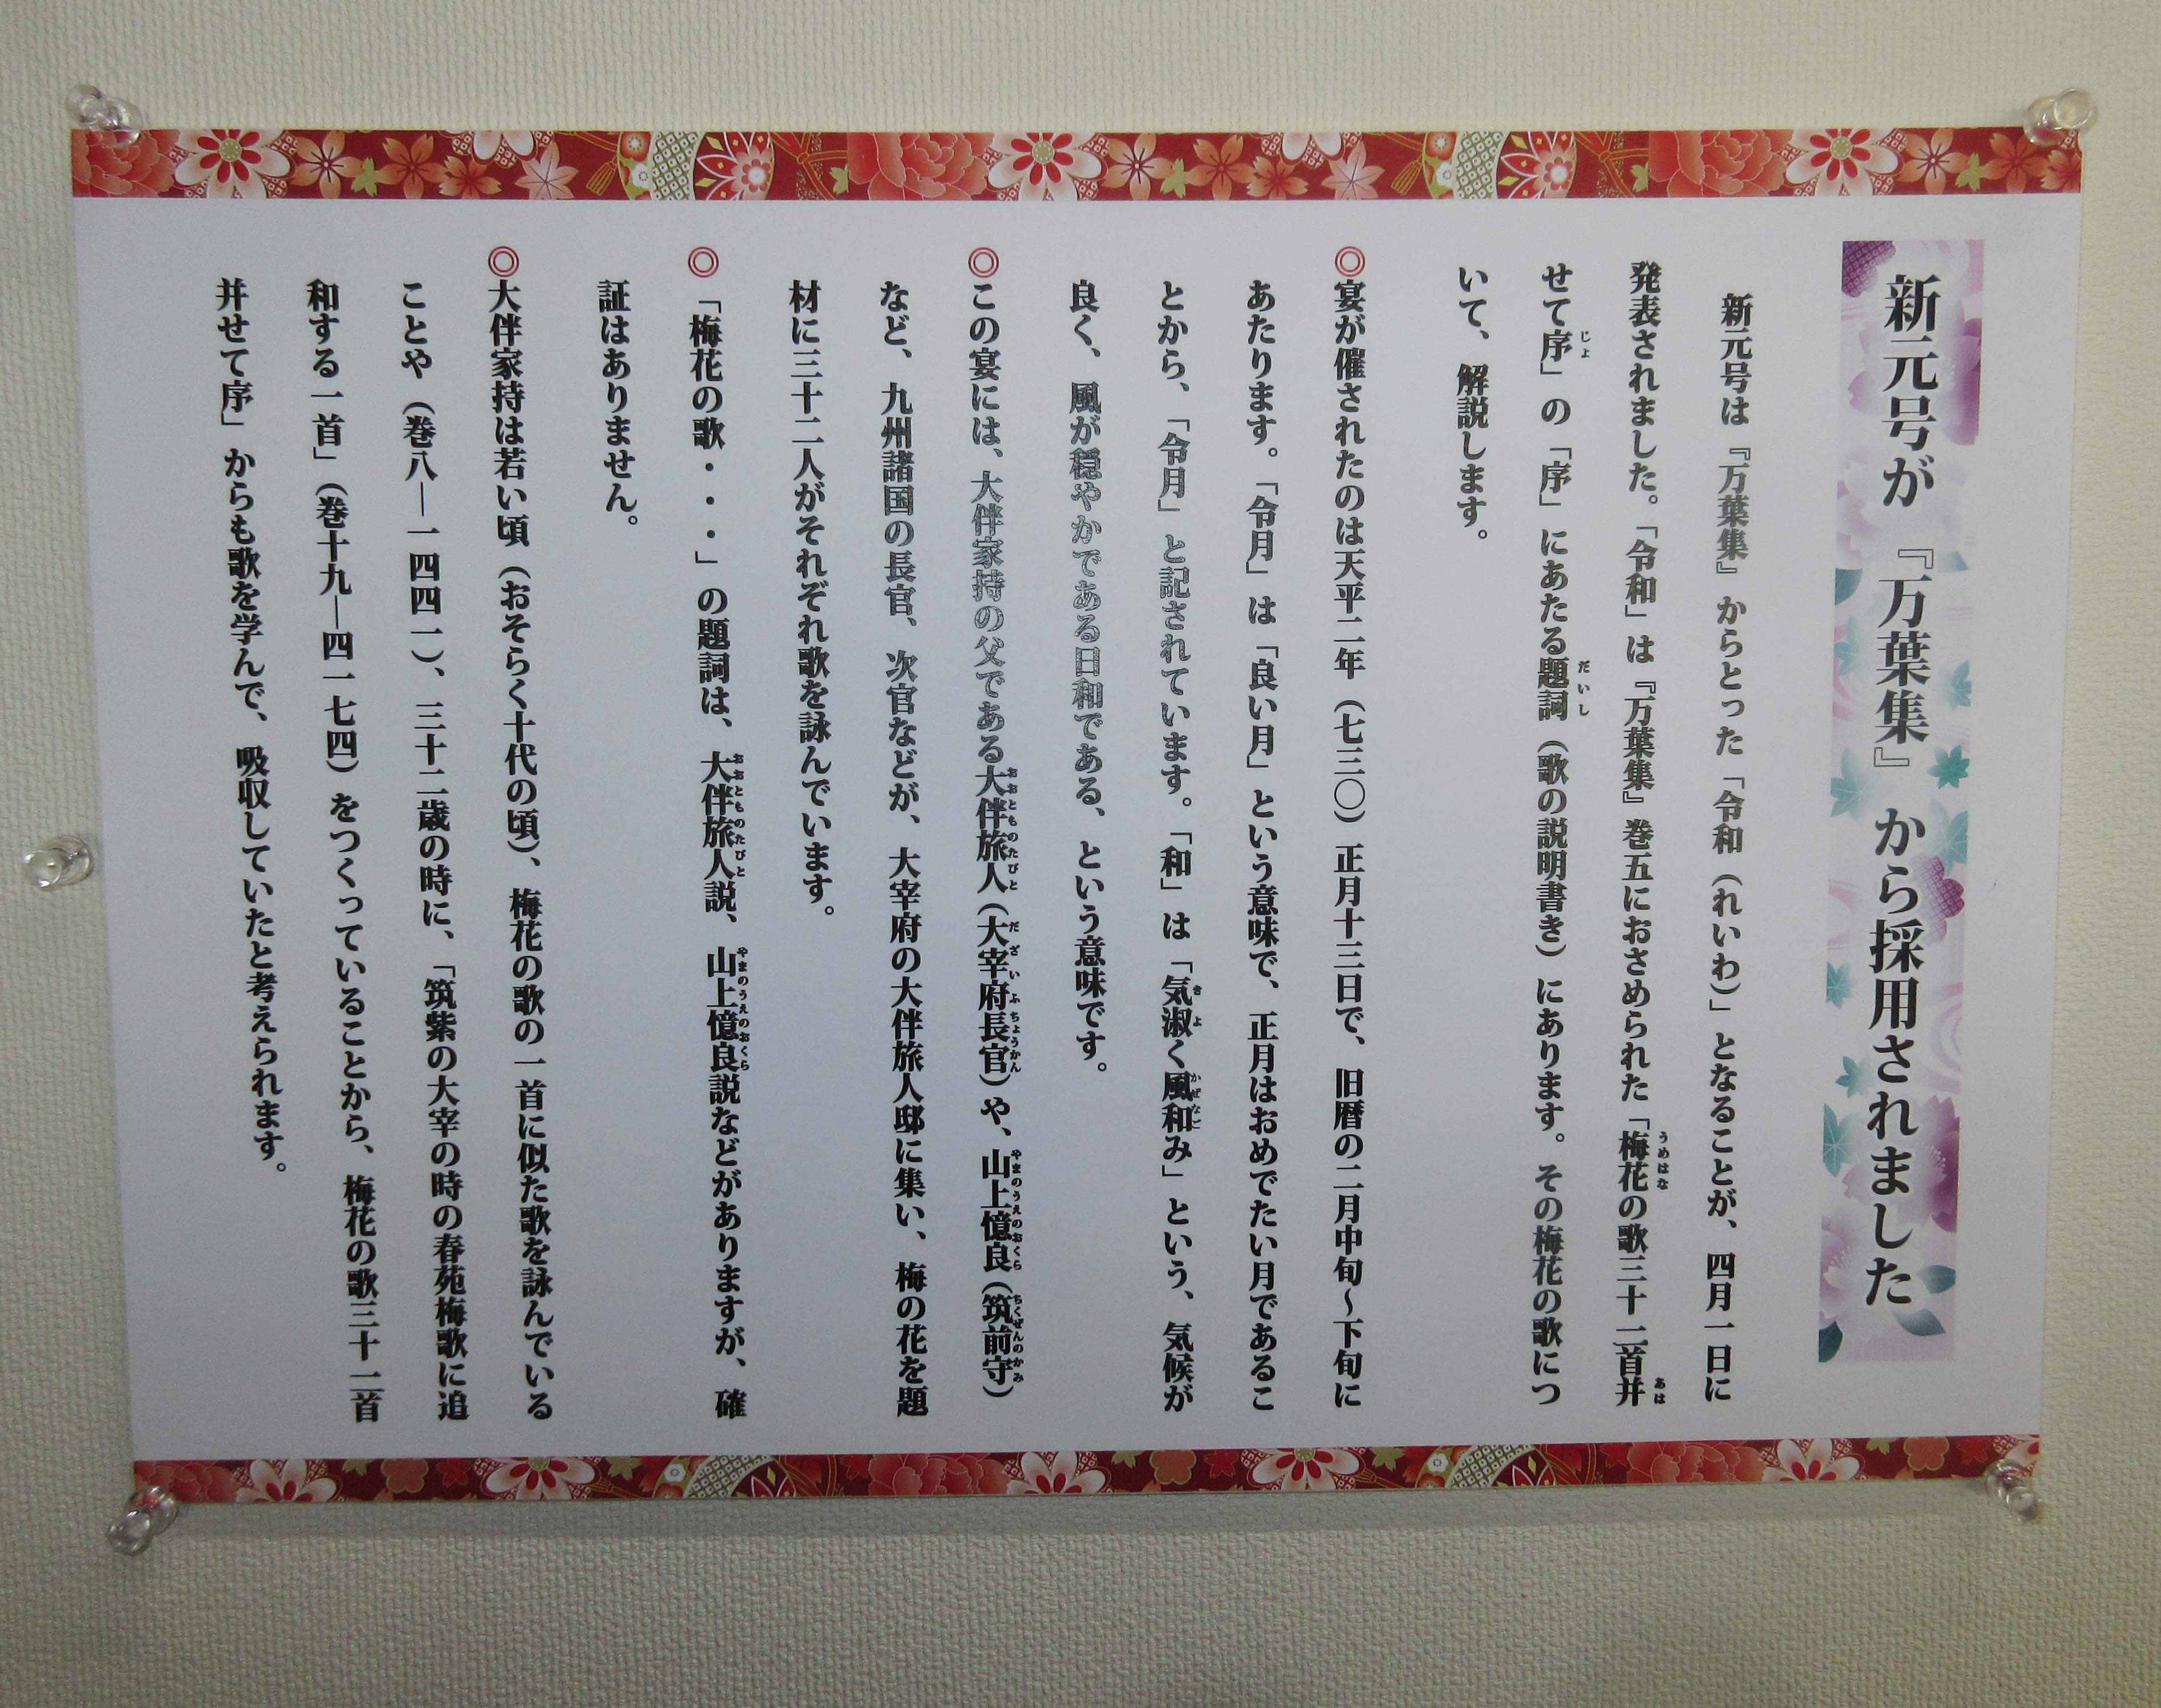 新元号が『万葉集』から採用されました
新元号は『万葉集』からとった「令和（れいわ）」となることが、四月一日に
発表されました。「令和」は『万葉集』巻五におさめられた「梅花の歌三十二首并
うめはな
あは
せて序」の「序」にあたる題詞（歌の説明書き）にあります。その梅花の歌につ
じょ
だいし
いて、解説します。
◎宴が催されたのは天平二年（七三〇）正月十三日で、旧暦の二月中旬～下旬に
あたります。「令月」は「良い月」という意味で、正月はおめでたい月であるこ
とから、「令月」と記されています。「和」は「気淑く風和み」という、気候が
きよ
かぜなご
良く、風が穏やかである日和である、という意味です。
◎この宴には、大伴家持の父である大伴旅人（大宰府長官）や、山上憶良（筑前守）
おおとものたびと
だざいふちょうかん
やまのうえのおくら
ちくぜんのかみ
など、九州諸国の長官、次官などが、大宰府の大伴旅人邸に集い、梅の花を題
材に三十二人がそれぞれ歌を詠んでいます。
◎「梅花の歌・・・」の題詞は、大伴旅人説、山上憶良説などがありますが、確
おおとものたびと
やまのうえのおくら
証はありません。
◎大伴家持は若い頃（おそらく十代の頃）、梅花の歌の一首に似た歌を詠んでいる
ことや（巻八―一四四一）、三十二歳の時に、「筑紫の大宰の時の春苑梅歌に追
和する一首」（巻十九―四一七四）をつくっていることから、梅花の歌三十二首
并せて序」からも歌を学んで、吸収していたと考えられます。